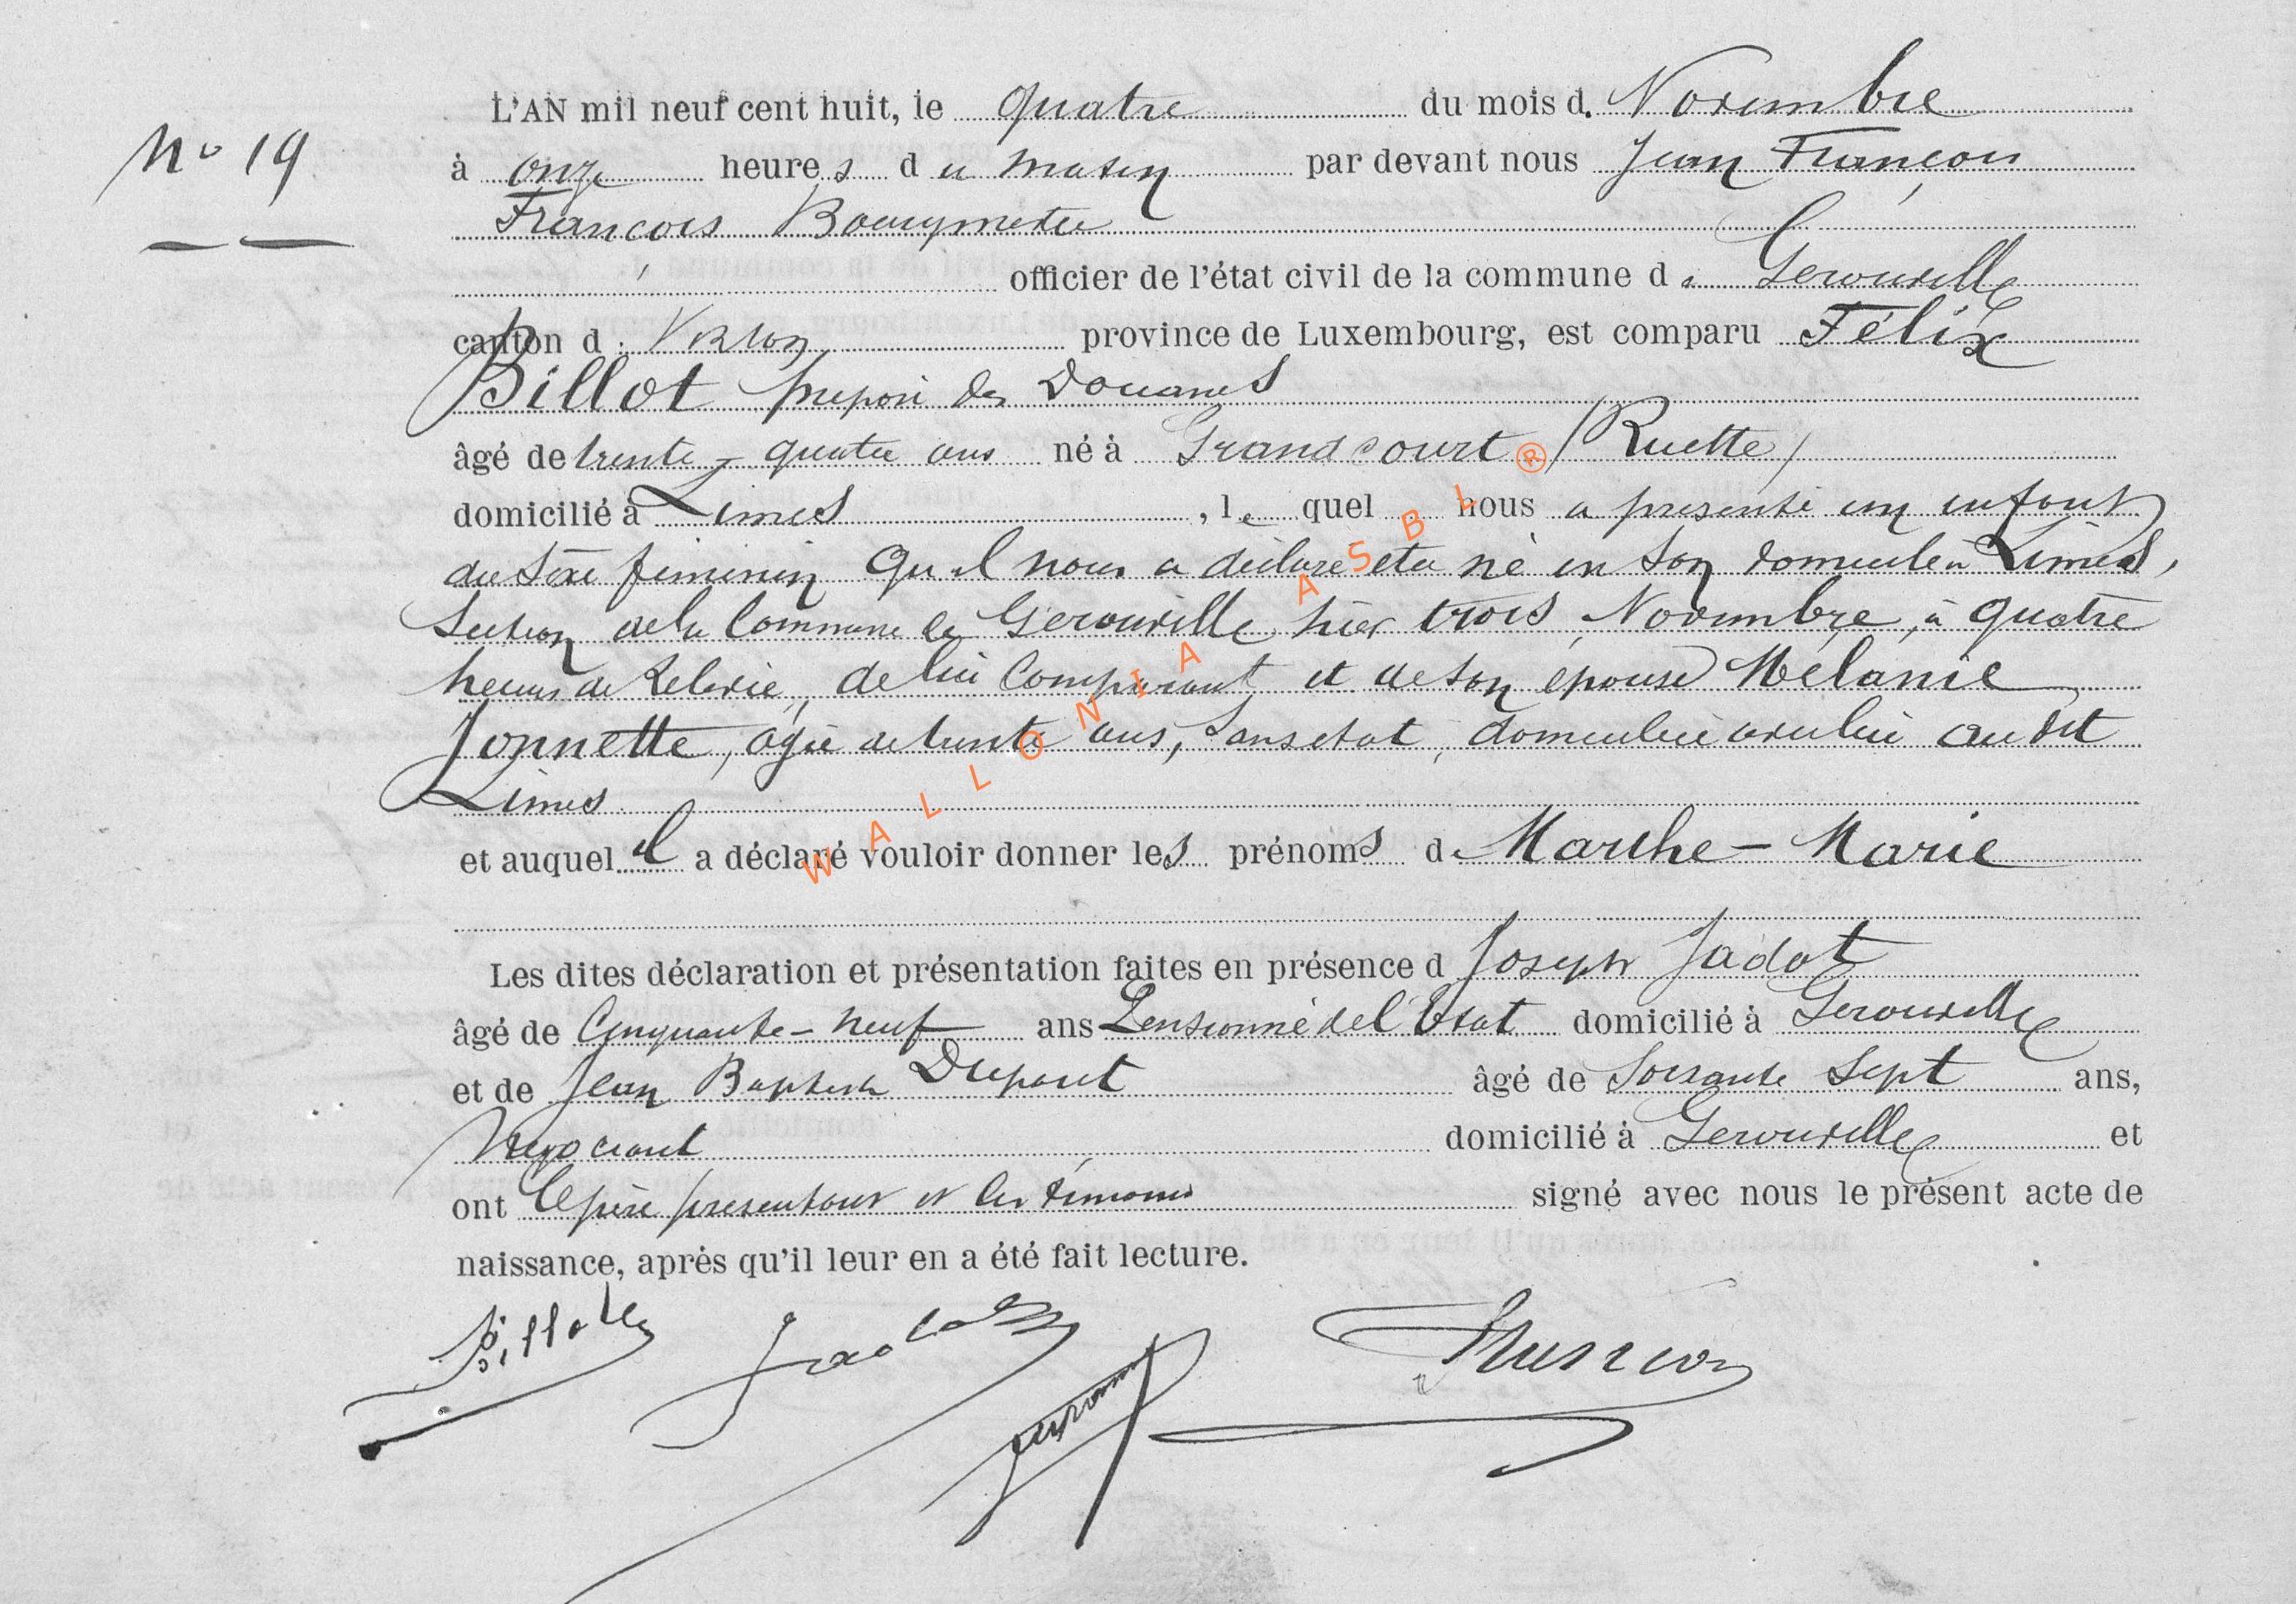 L'AN mil neuf cent huit, le quatre du mois d. Novembre
No 19
à onze heures du matin par devant nous Jean François
François
officier de l'état civil de la commune de Gerouville
canton d. Virton province de Luxembourg, est comparu Félix
Billot préposé des Douanes
âgé de trente-quatre ans né à Grandcourt /Ruette/
domicilié à Limes, lequel nous a présenté un enfant
du sexe féminin qu'il nous a déclaré être né en son domicile à Limes,
section de la Commune de Gerouville hier trois Novembre, à quatre
heures de relevée, de lui comparant et de son épouse Mélanie
Jonnette, âgée de trente ans, sans état, domiciliée avec lui au dit
Limes
et auquel il a déclaré vouloir donner les prénoms de Marthe-Marie
Les dites déclaration et présentation faites en présence d Joseph Jadot
âgé de Cinquante-neuf ans Pensionné de l'Etat domicilié à Gerouville
et de Jean Baptiste Dupont âgé de Soixante Sept ans,
Négociant domicilié à Gerouville et
ont le père présentant et les témoins signé avec nous le présent acte de
naissance, après qu'il leur en a été fait lecture.
Billot
Jadot
Dupont
WALLONIA ASBL ®